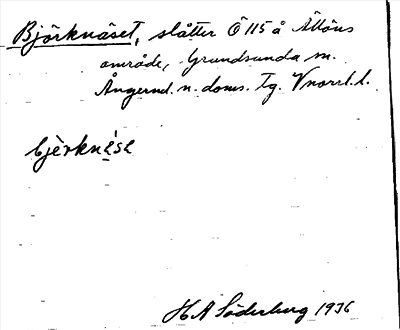 Björknäset, slåtter Ö 115 å Ältöns
område, Grundsunda sn.
Ångernd. n. doms. tg. Vnorrl. l.
bjèrknése
H A Söderberg 1936